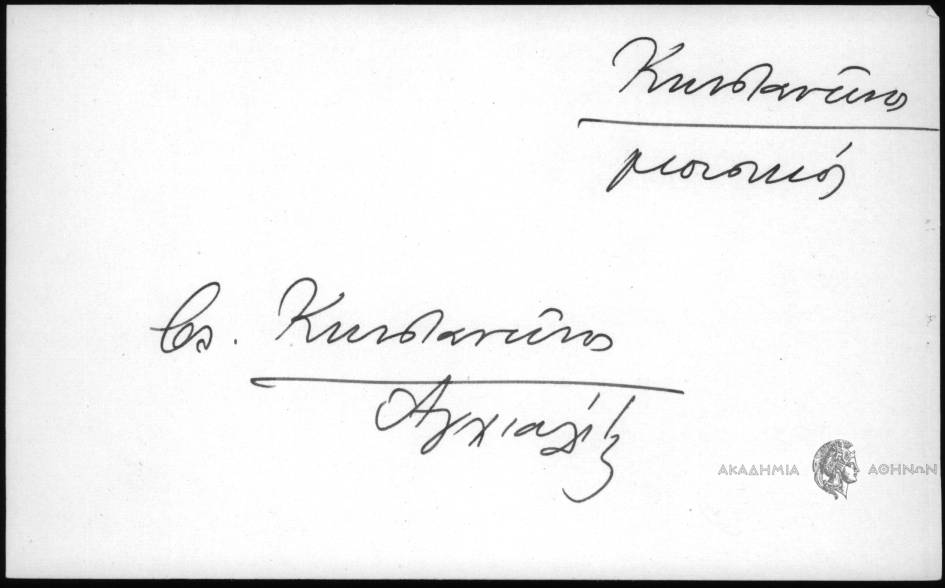 Κωνσταντῖνος
μουσικός
βλ. Κωνσταντῖνος
Ἀγχιαλεύς
ΑΚΑΔΗΜΙΑ ΑΘΗΝΩΝ